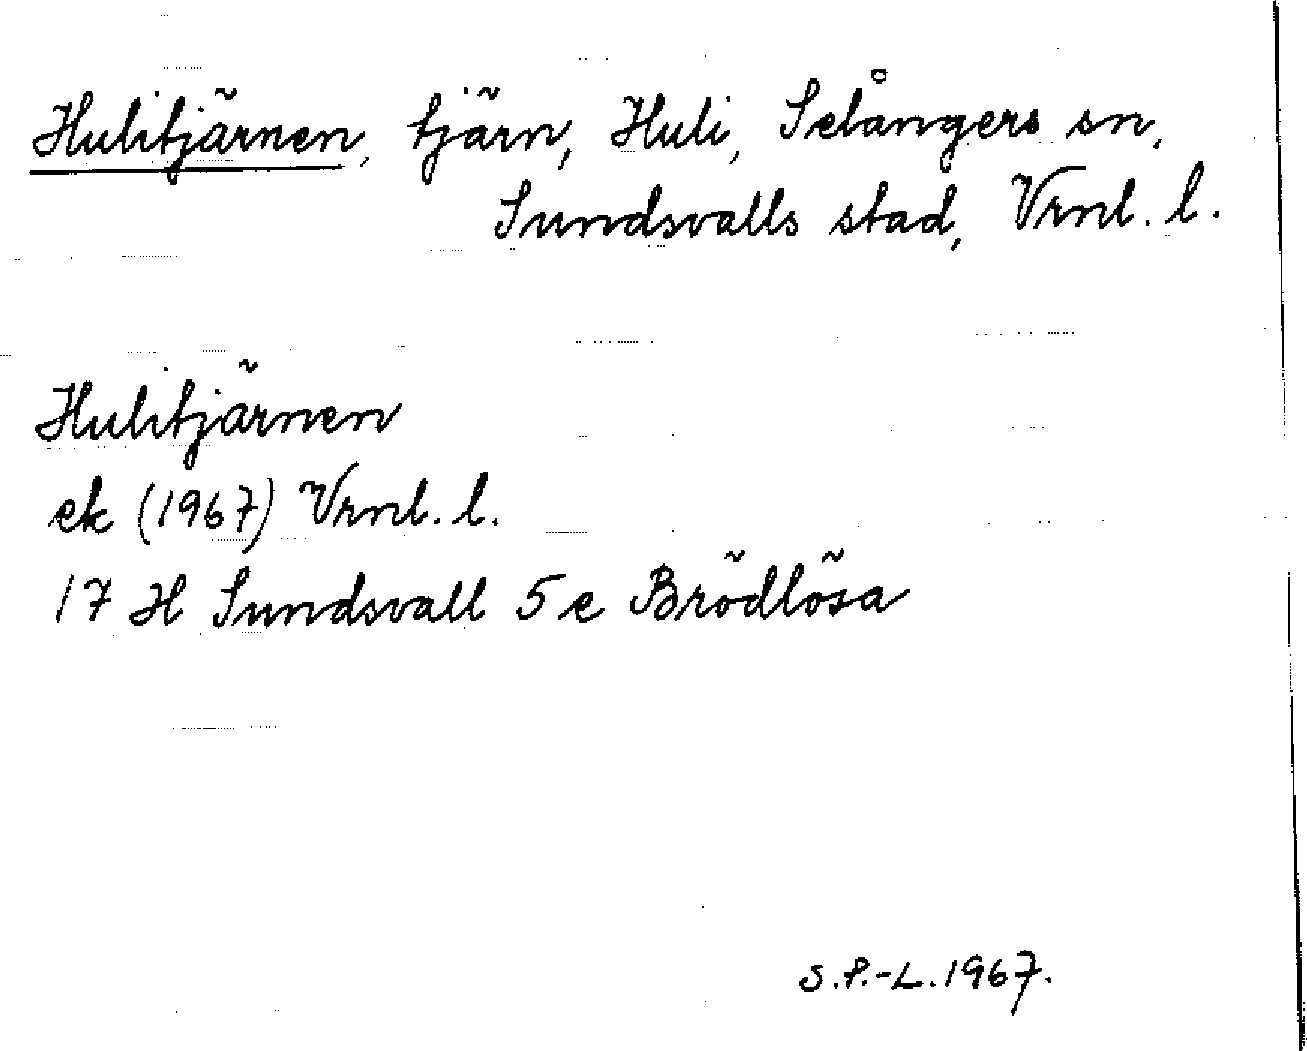 Hulitjärnen, tjärn, Huli, Selångers sn,
Sundsvalls stad, Vrnl. l.
Hulitjärnen
ek (1967) Vrnl. l.
17 H Sundsvall 5 e Brödlösa
S.P.-L. 1967.